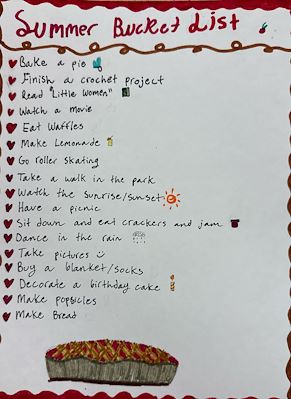 Summer Bucket List
Bake a pie
Finish a crochet project
Read "Little Women"
Watch a movie
Eat Waffles
Make Lemonade
Go roller skating
Take a walk in the park
Watch the sunrise/sunset
Have a picnic
Sit down and eat crackers and jam
Dance in the rain
Take pictures
Buy a blanket/socks
Decorate a birthday cake
Make popsicles
Make Bread